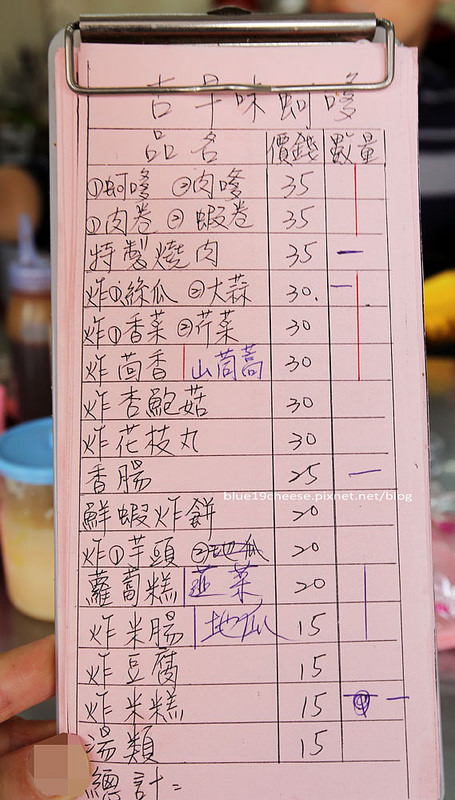 古早味蚵嗲
品名 價錢 數量
①蚵嗲 ②肉嗲 35
①肉卷 ② 蝦卷 35
特製燒肉 35 一
炸①絲瓜 ②大蒜 30. 一
炸①香菜 ②芹菜 30
炸茴香 | 山茼蒿 30
炸杏鮑菇 30
炸花枝丸 30
香腸 25 一
blue19cheese.pixnet.net/blog
鮮蝦炸餅 20
炸①芋頭 ②地瓜 20
蘿蔔糕 | 韮菜 20
炸米腸 | 地瓜 15
炸豆腐 15
炸米糕 15 一
湯類 15
總計=